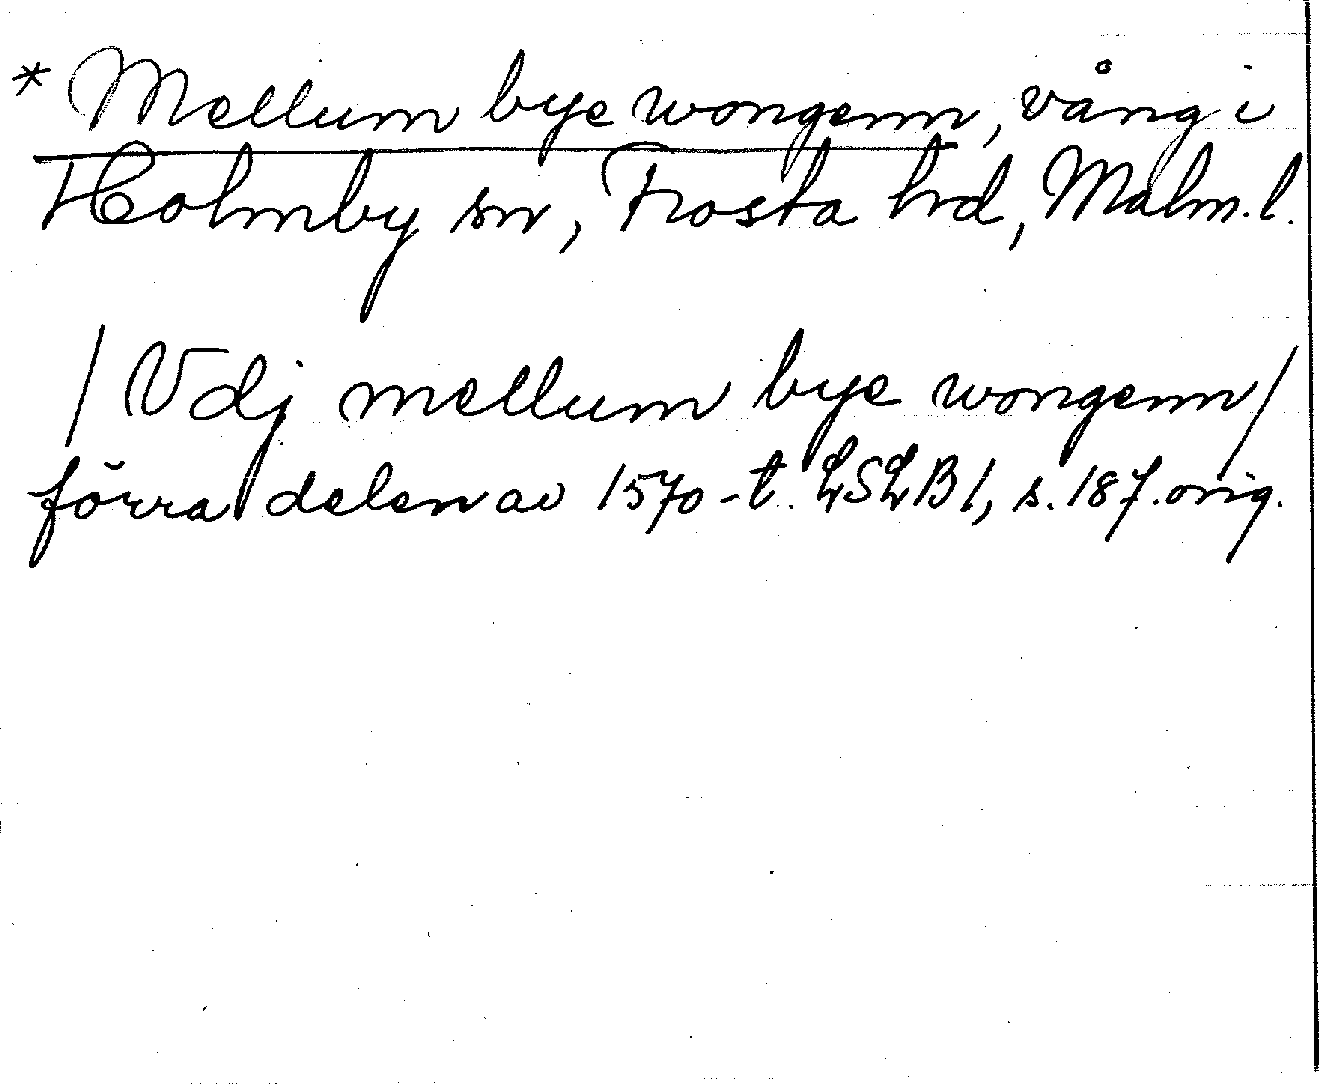 * Mellum bye wongenn, vång i
Holmby sn, Frosta hrd, Malm. l.
/ Vdj mellum bye wongenn /
förra delen av 1570-t. LSLB 1, s. 187. orig.